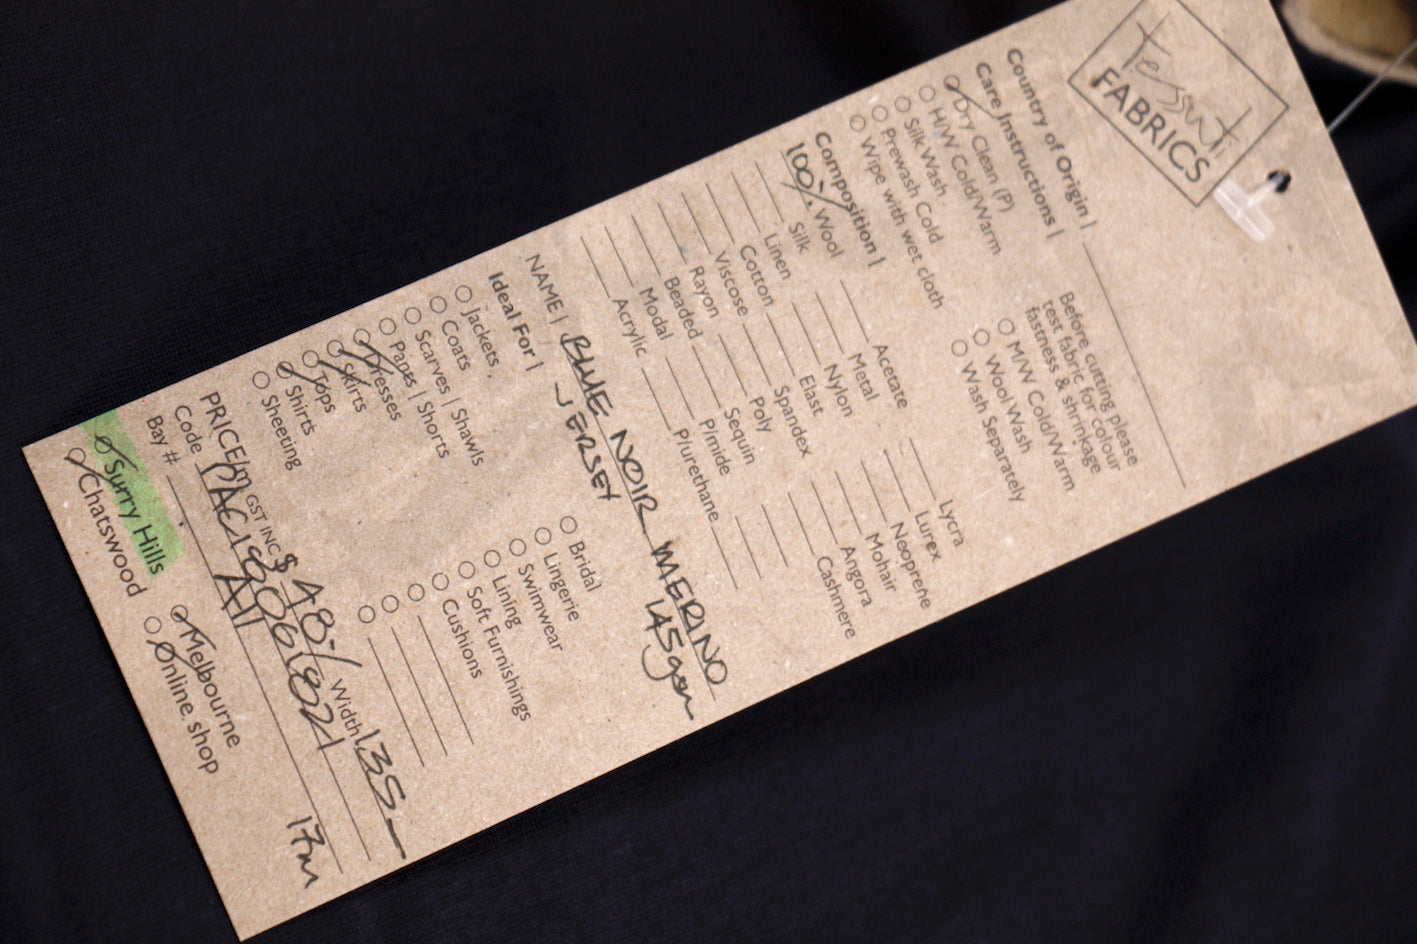 Tessuti
FABRICS
Country of Origin |
Care Instructions |
Dry Clean (P)
H/W Cold/Warm
Silk Wash
Prewash Cold
Wipe with wet cloth
Before cutting please
test fabric for colour
fastness & shrinkage
M/W Cold/Warm
Wool Wash
Wash Separately
Composition |
100% Wool
Silk
Linen
Cotton
Viscose
Rayon
Beaded
Modal
Acrylic
Acetate
Metal
Nylon
Elast
Spandex
Poly
Sequin
P/mide
P/urethane
Lycra
Lurex
Neoprene
Mohair
Angora
Cashmere
NAME | BLUE NOIR MERINO
JERSEY 145gsm
Ideal For |
Jackets
Coats
Scarves | Shawls
Pants | Shorts
Dresses
Skirts
Tops
Shirts
Sheeting
Bridal
Lingerie
Swimwear
Lining
Soft Furnishings
Cushions
PRICE/m GST INC $ 48.-/ Width 135
Code
Bay # A11 17m
Surry Hills
Chatswood
Melbourne
Online shop